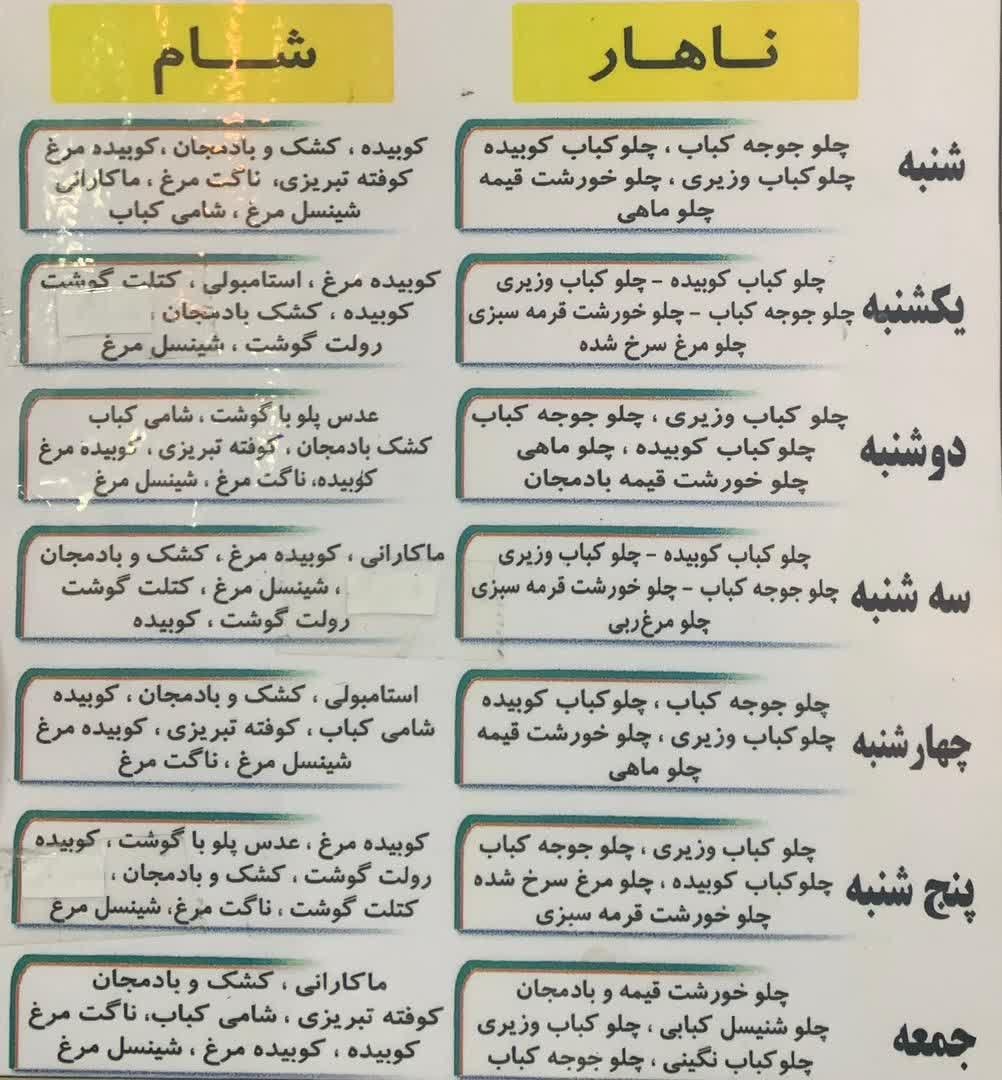 ناهار
شام
شنبه
چلو جوجه کباب ، چلوکباب کوبیده
چلوکباب وزیری ، چلو خورشت قیمه
چلو ماهی
کوبیده ، کشک و بادمجان ،کوبیده مرغ
کوفته تبریزی، ناگت مرغ ، ماکارانی
شینسل مرغ ، شامی کباب
یکشنبه
چلو کباب کوبیده - چلو کباب وزیری
چلو جوجه کباب - چلو خورشت قرمه سبزی
چلو مرغ سرخ شده
کوبیده مرغ ، استامبولی ، کتلت گوشت
کوبیده ، کشک بادمجان ،
رولت گوشت ، شینسل مرغ
دوشنبه
چلو کباب وزیری ، چلو جوجه کباب
چلوکباب کوبیده ، چلو ماهی
چلو خورشت قیمه بادمجان
عدس پلو با گوشت ، شامی کباب
کشک بادمجان ، کوفته تبریزی ، کوبیده مرغ
کوبیده، ناگت مرغ ، شینسل مرغ
سه شنبه
چلو کباب کوبیده - چلو کباب وزیری
چلو جوجه کباب - چلو خورشت قرمه سبزی
چلو مرغ ربی
ماکارانی ، کوبیده مرغ ، کشک و بادمجان
، شینسل مرغ ، کتلت گوشت
رولت گوشت ، کوبیده
چهارشنبه
چلو جوجه کباب ، چلوکباب کوبیده
چلوکباب وزیری ، چلو خورشت قیمه
چلو ماهی
استامبولی ، کشک و بادمجان ، کوبیده
شامی کباب ، کوفته تبریزی ، کوبیده مرغ
شینسل مرغ ، ناگت مرغ
پنج شنبه
چلو کباب وزیری ، چلو جوجه کباب
چلوکباب کوبیده ، چلو مرغ سرخ شده
چلو خورشت قرمه سبزی
کوبیده مرغ ، عدس پلو با گوشت ، کوبیده
رولت گوشت ، کشک و بادمجان ،
کتلت گوشت ، ناگت مرغ، شینسل مرغ
جمعه
چلو خورشت قیمه و بادمجان
چلو شنیسل کبابی ، چلو کباب وزیری
چلوکباب نگینی ، چلو جوجه کباب
ماکارانی ، کشک و بادمجان
کوفته تبریزی ، شامی کباب، ناگت مرغ
کوبیده ، کوبیده مرغ ، شینسل مرغ